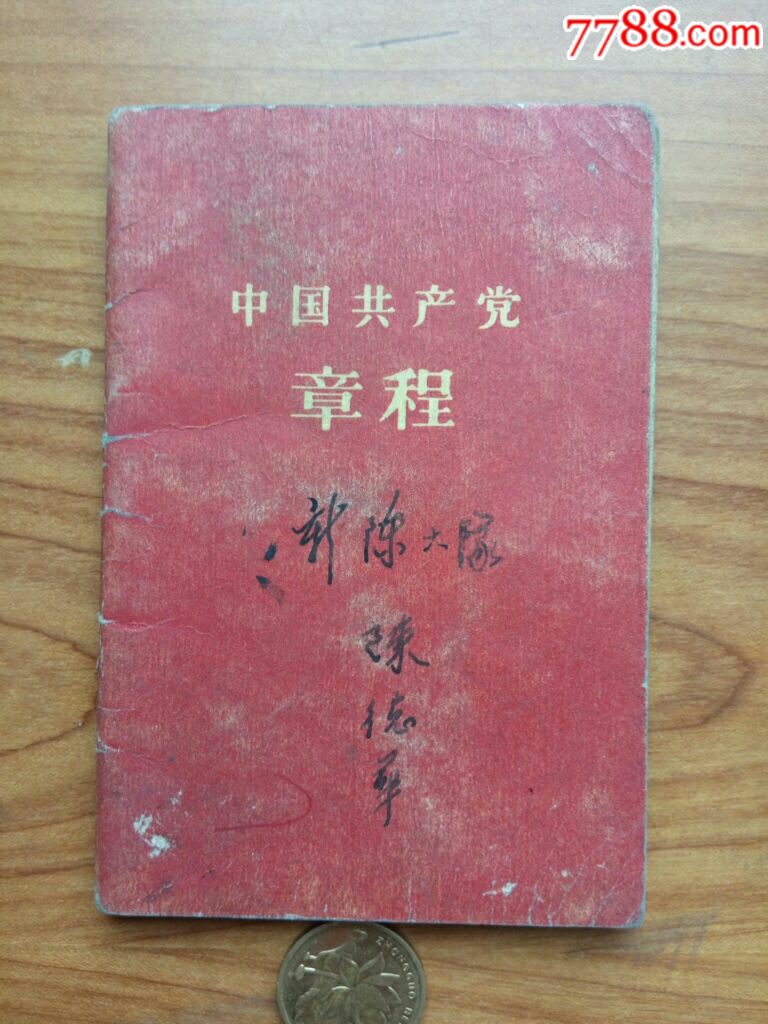 7788.com
中国共产党
章程
新陈大隊
陳德華
ZHONGGUO